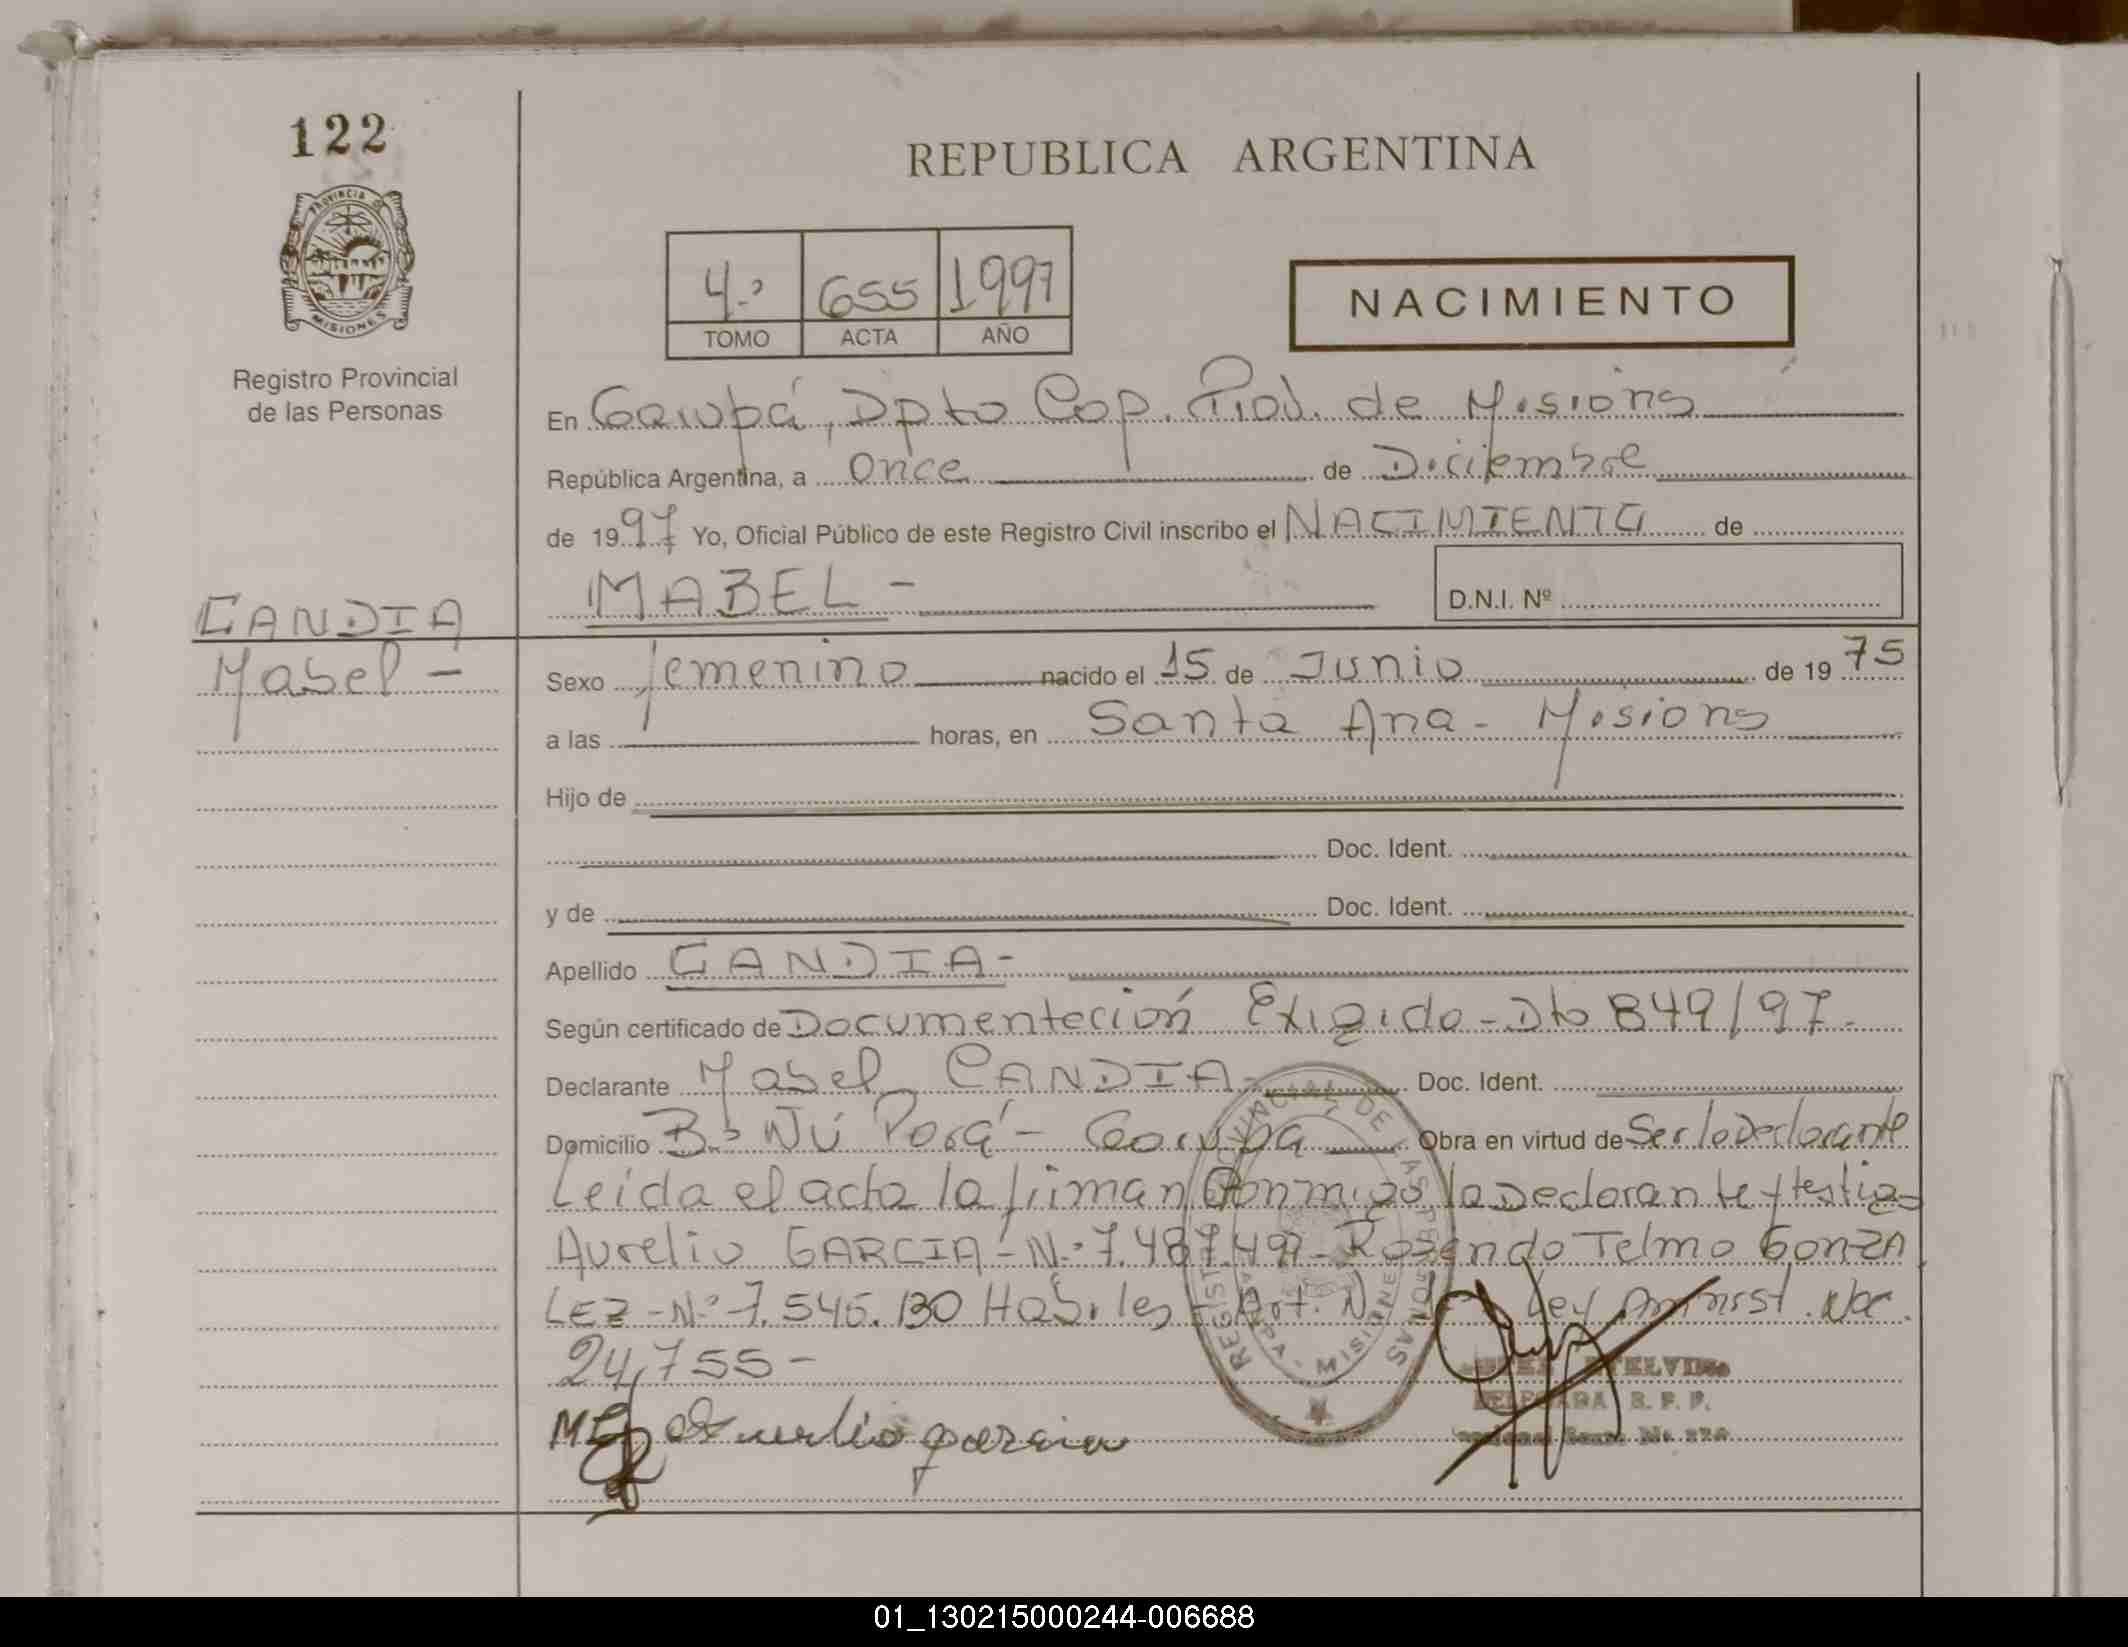 122
REPUBLICA ARGENTINA
PROVINCIA D
MISIONES
Registro Provincial
de las Personas
4.º 655 1997
TOMO ACTA AÑO
NACIMIENTO
En Garupá, Dpto Cap. Prov. de Misions
República Argentina, a once de Diciiembre
de 1997 Yo, Oficial Público de este Registro Civil inscribo el NACIMIENTO de
MABEL -
D.N.I. Nº
CANDIA
Mabel -
Sexo femenino nacido el 15 de Junio de 1975
a las horas, en Santa Ana - Misions
Hijo de
Doc. Ident.
y de Doc. Ident.
Apellido CANDIA -
Según certificado de Documentación Exigida - Dto 849/97.
Declarante Mabel CANDIA - Doc. Ident.
Domicilio Bº Ñú Porá - Garupa Obra en virtud de Ser la Declarante
Leida el acta la firman Conmigo la Declarante y testigos
Aurelio GARCIA - N.º 7.487.497 - Rosendo Telmo GonzA
LEZ - N.º 7.545.130 Habiles - Art. N Ley Administ. Nac.
24,755 -
Aurelio garcia
REGISTRO PROVINCIAL DE LAS PERSONAS
MISIONES
DELEGADA R. P. P.
01_130215000244-006688